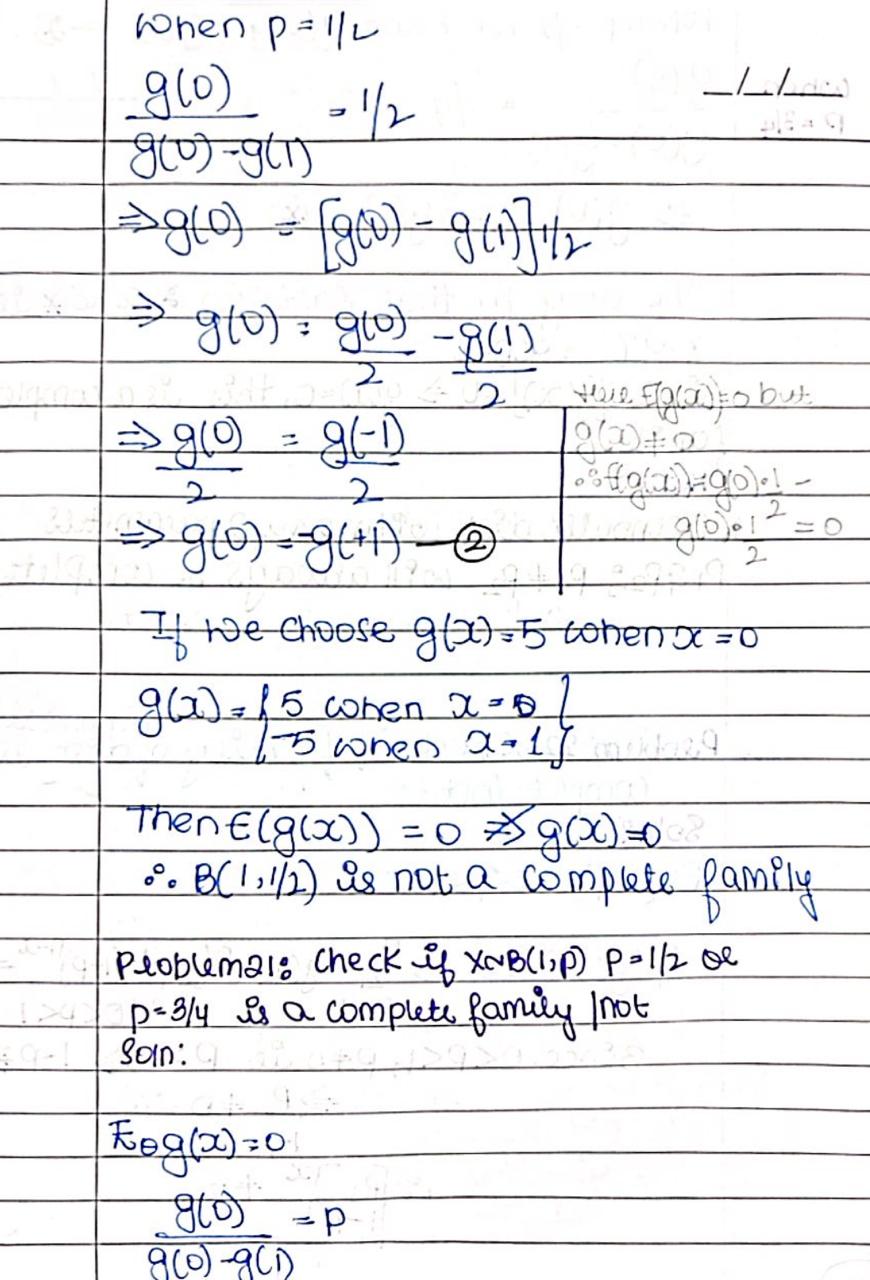 When p = 1/2
g(0)
g(0) - g(1)
= 1/2
_/_/___
⇒ g(0) = [g(0) - g(1)] 1/2
⇒ g(0) = g(0)/2 - g(1)/2
⇒ g(0)/2 = g(-1)/2
⇒ g(0) = -g(+1) — ②
there E(g(x))=0 but
g(x) ≠ 0
∴ E(g(x)) = g(0)·1/2 -
g(0)·1/2 = 0
If we choose g(x) = 5 when x = 0
g(x) = { 5 when x = 0 }
{ -5 when x = 1 }
Then E(g(x)) = 0 ⇏ g(x) = 0
∴ B(1,1/2) is not a complete family
Problem 21: Check if X~B(1,p) p = 1/2 or
p = 3/4 is a complete family / not
Soln:
Eθ g(x) = 0
g(0)
g(0) - g(1)
= p